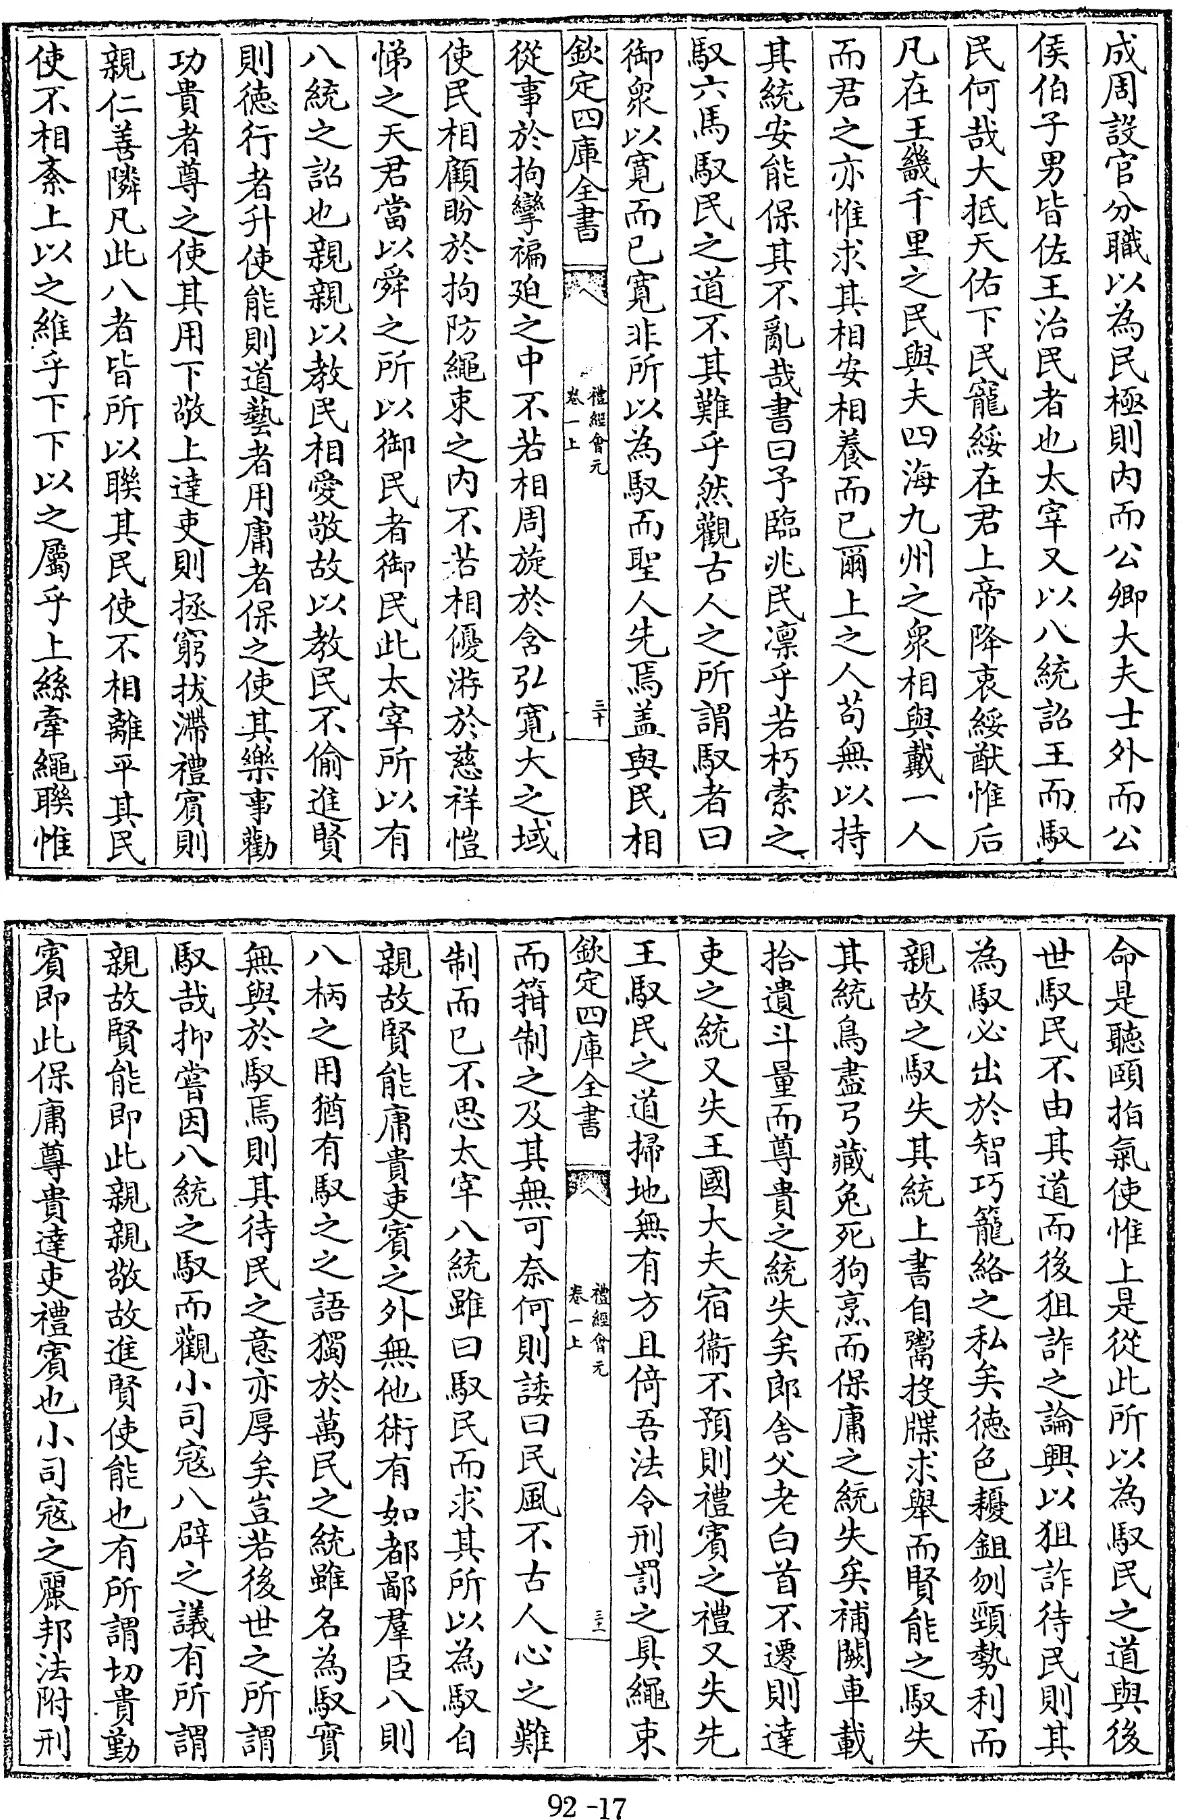 成周設官分職以為民極則内而公卿大夫士外而公
侯伯子男皆佐王治民者也太宰又以八統詔王而馭
民何哉大抵天佑下民寵綏在君上帝降衷綏猷惟后
凡在王畿千里之民與夫四海九州之衆相與戴一人
而君之亦惟求其相安相養而已爾上之人苟無以持
其統安能保其不亂哉書曰予臨兆民凛乎若朽索之
馭六馬馭民之道不其難乎然觀古人之所謂馭者曰
御衆以寛而已寛非所以為馭而聖人先焉盖與民相
欽定四庫全書
禮經會元
卷一上
三十
從事於拘攣褊廹之中不若相周旋於含弘寛大之域
使民相顧盼於拘防繩束之内不若相優游於慈祥愷
悌之天君當以舜之所以御民者御民此太宰所以有
八統之詔也親親以教民相愛敬故以教民不偷進賢
則徳行者升使能則道藝者用庸者保之使其樂事勸
功貴者尊之使其用下敬上達吏則拯窮拔滯禮賓則
親仁善隣凡此八者皆所以聯其民使不相離平其民
使不相紊上以之維乎下下以之屬乎上絲牽繩聯惟
命是聽頤指氣使惟上是從此所以為馭民之道與後
世馭民不由其道而後狙詐之論興以狙詐待民則其
為馭必出於智巧籠絡之私矣徳色耰鉏刎頸勢利而
親故之馭失其統上書自鬻投牒求舉而賢能之馭失
其統鳥盡弓藏兔死狗烹而保庸之統失矣補闕車載
拾遺斗量而尊貴之統失矣郎舍父老白首不遷則達
吏之統又失王國大夫宿衞不預則禮賓之禮又失先
王馭民之道掃地無有方且倚吾法令刑罰之具繩束
欽定四庫全書
禮經會元
卷一上
三十一
而箝制之及其無可奈何則諉曰民風不古人心之難
制而已不思太宰八統雖曰馭民而求其所以為馭自
親故賢能庸貴吏賓之外無他術有如都鄙羣臣八則
八柄之用猶有馭之之語獨於萬民之統雖名為馭實
無與於馭焉則其待民之意亦厚矣豈若後世之所謂
馭哉抑嘗因八統之馭而觀小司寇八辟之議有所謂
親故賢能即此親親敬故進賢使能也有所謂功貴勤
賓即此保庸尊貴達吏禮賓也小司寇之麗邦法附刑
92-17